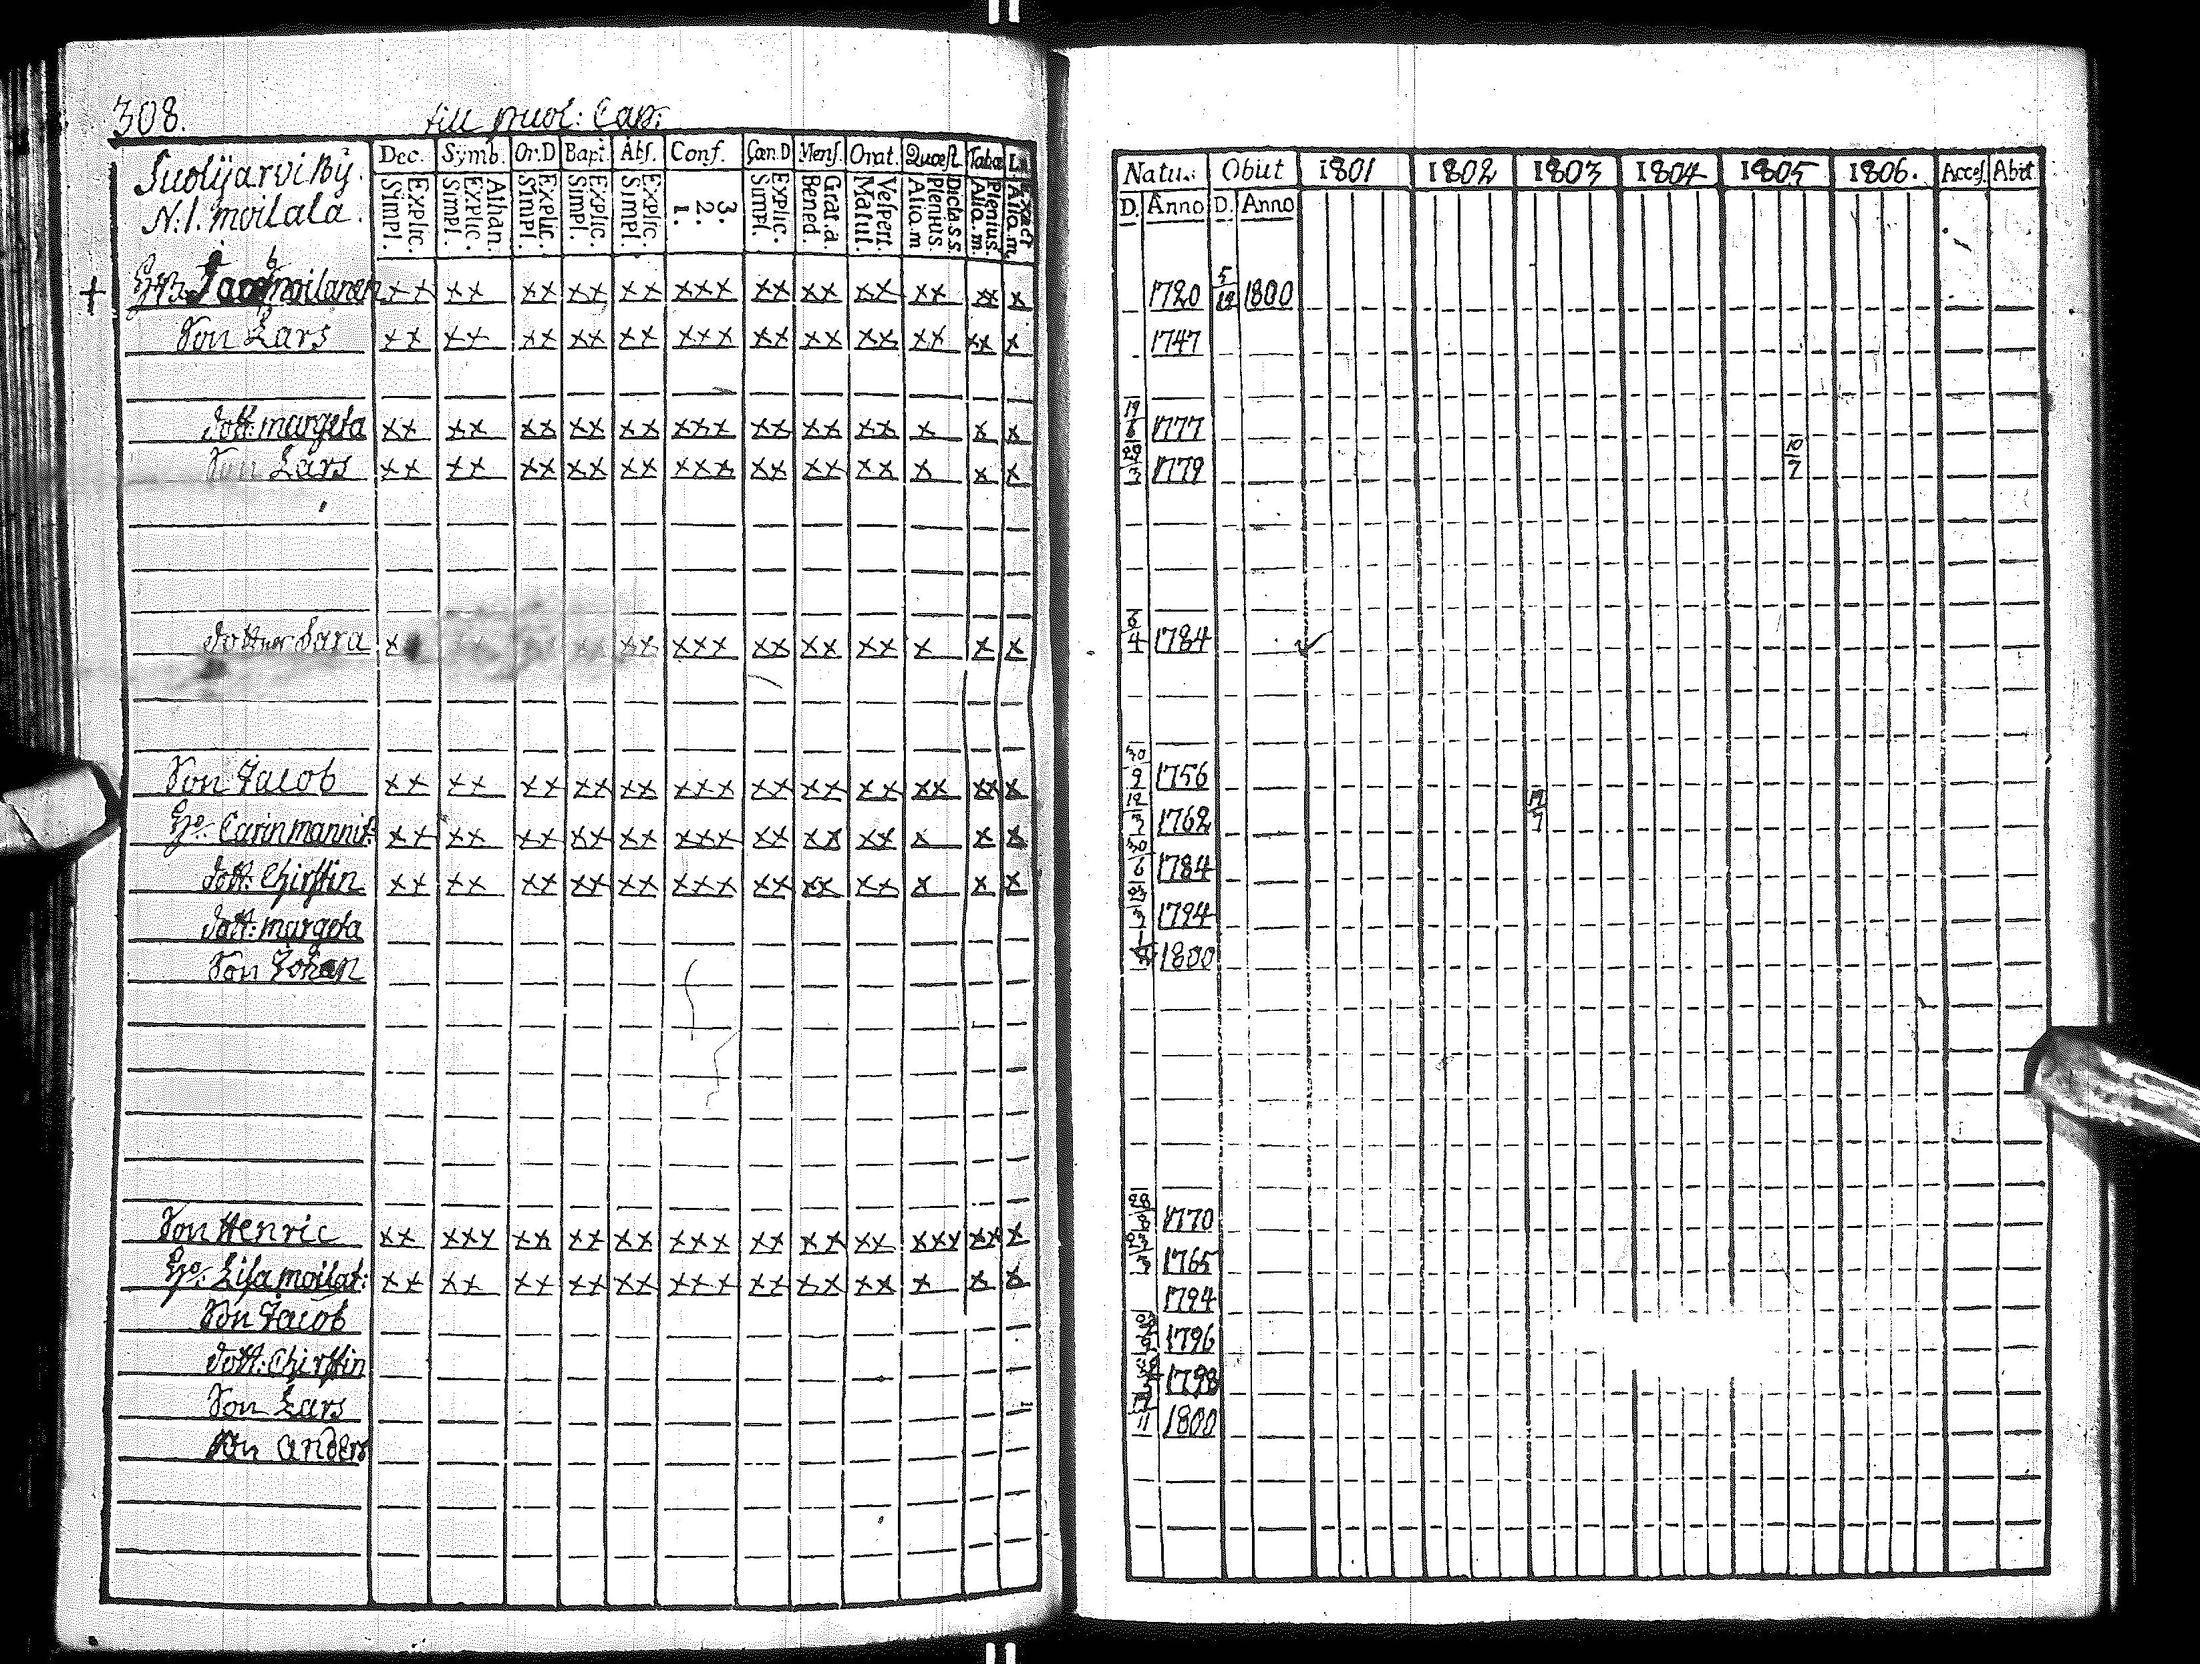 308. till puol: Cap:
Suolijarvi By.
N:1. moilala.
Dec. Symb. Or.D Bapt. Abs. Conf. Cœn.D Mens. Orat. Quæst. Tabœ
Explic. Simpl. Athan. Explic. Simpl. Explic. Simpl. Explic. Simpl. Explic. Simpl. 3. 2. 1. Explic. Simpl. Grat.a. Bened. Vespert. Matut. Dicta.s.s. Plenius. Alia.m Plenius. Alia.m. Exact Alia.m
Natu.: Obiit 1801 1802 1803 1804 1805 1806. Access. Abit
D. Anno D. Anno
+ Jacob moilanen xx xx xx xx xx xxx xx xx xx xx xx x 1720 5/12 1800
Son Lars xx xx xx xx xx xxx xx xx xx xx xx x 1747
dott: margeta xx xx xx xx xx xxx xx xx xx x x x 1777
Son Lars xx xx xx xx xx xxx xx xx xx x x x 1779 10/7
dotter Sara x xx xx xxx xx xx xx x x x 6/4 1784
Son Jacob xx xx xx xx xx xxx xx xx xx xx xx x 30/9 1756
Ho: Carin mannit: xx xx xx xx xx xxx xx xx xx x x x 1762
dott: Chirstin xx xx xx xx xx xxx xx xx xx x x x 30/6 1784
dott: margeta 1794
Son Johan 1800
Son Henric xx xxx xx xx xx xxx xx xx xx xxx xx x 28/8 1770
Ho: Lisa moilat: xx xx xx xx xx xxx xx xx xx x x x 1765
Son Jacob 1794
dott: Chirstin 1796
Son Lars 1798
Son Anders 11 1800